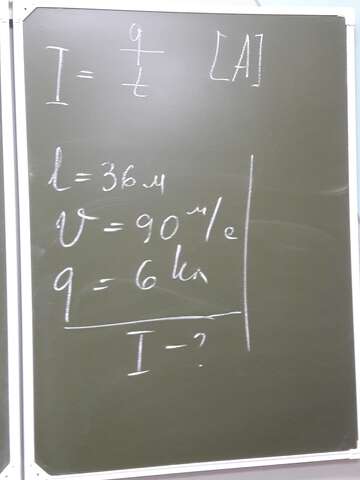 I = q/t [A]
l = 36 м
v = 90 м/с
q = 6 Кл
I - ?